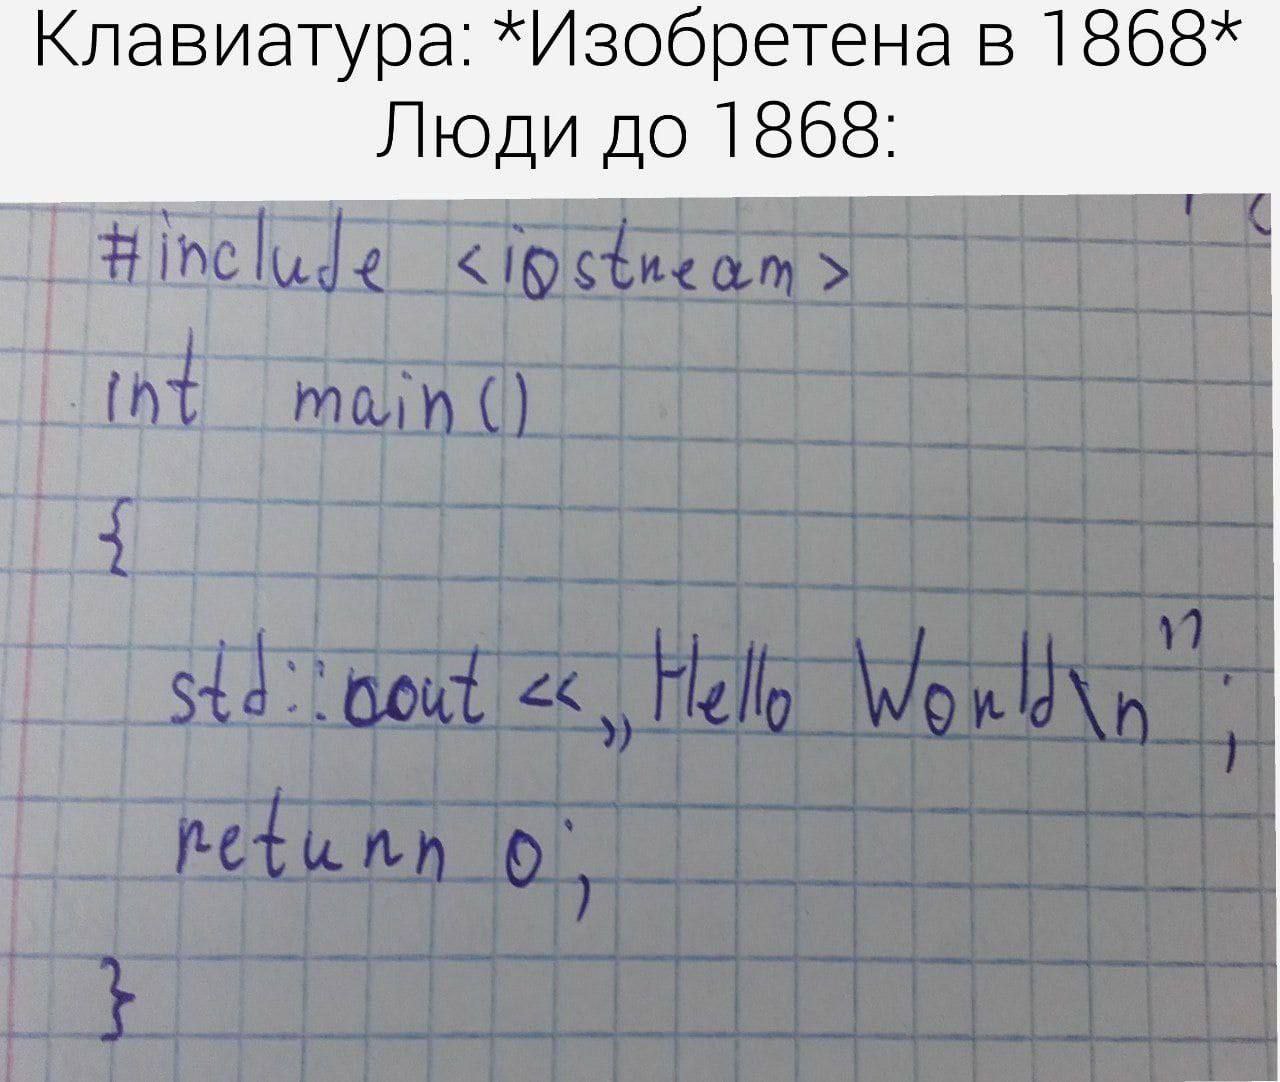 Клавиатура: *Изобретена в 1868*
Люди до 1868:
#include <iostream>
int main()
{
std::cout << „Hello World\n";
return 0;
}